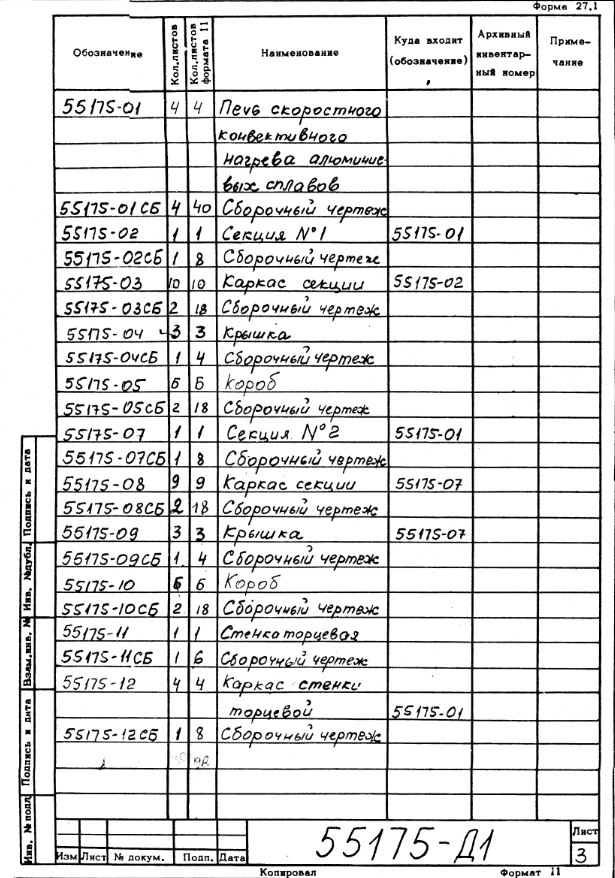 Форма 27.1
Обозначение Кол.листов Кол.листов формата 11 Наименование Куда входит (обозначение) Архивный инвентарный номер Примечание
55175-01 4 4 Печь скоростного
конвективного
нагрева алюминие
вых сплавов
55175-01СБ 4 40 Сборочный чертеж
55175-02 1 1 Секция N°1 55175-01
55175-02СБ 1 8 Сборочный чертеж
55175-03 10 10 Каркас секции 55175-02
55175-03СБ 2 18 Сборочный чертеж
55175-04 3 3 Крышка
55175-04СБ 1 4 Сборочный чертеж
55175-05 Б Б Короб
55175-05СБ 2 18 Сборочный чертеж
55175-07 1 1 Секция N°2 55175-01
55175-07СБ 1 8 Сборочный чертеж
55175-08 9 9 Каркас секции 55175-07
55175-08СБ 2 18 Сборочный чертеж
55175-09 3 3 Крышка 55175-07
55175-09СБ 1 4 Сборочный чертеж
55175-10 Б Б Короб
55175-10СБ 2 18 Сборочный чертеж
55175-11 1 1 Стенка торцевая
55175-11СБ 1 6 Сборочный чертеж
55175-12 4 4 Каркас стенки
торцевой 55175-01
55175-12СБ 1 8 Сборочный чертеж
Инв. № подл. Подпись и дата Взам.инв. № Инв. №дубл. Подпись и дата
Изм Лист № докум. Подп. Дата
55175-Д1
Лист
3
Копировал Формат 11